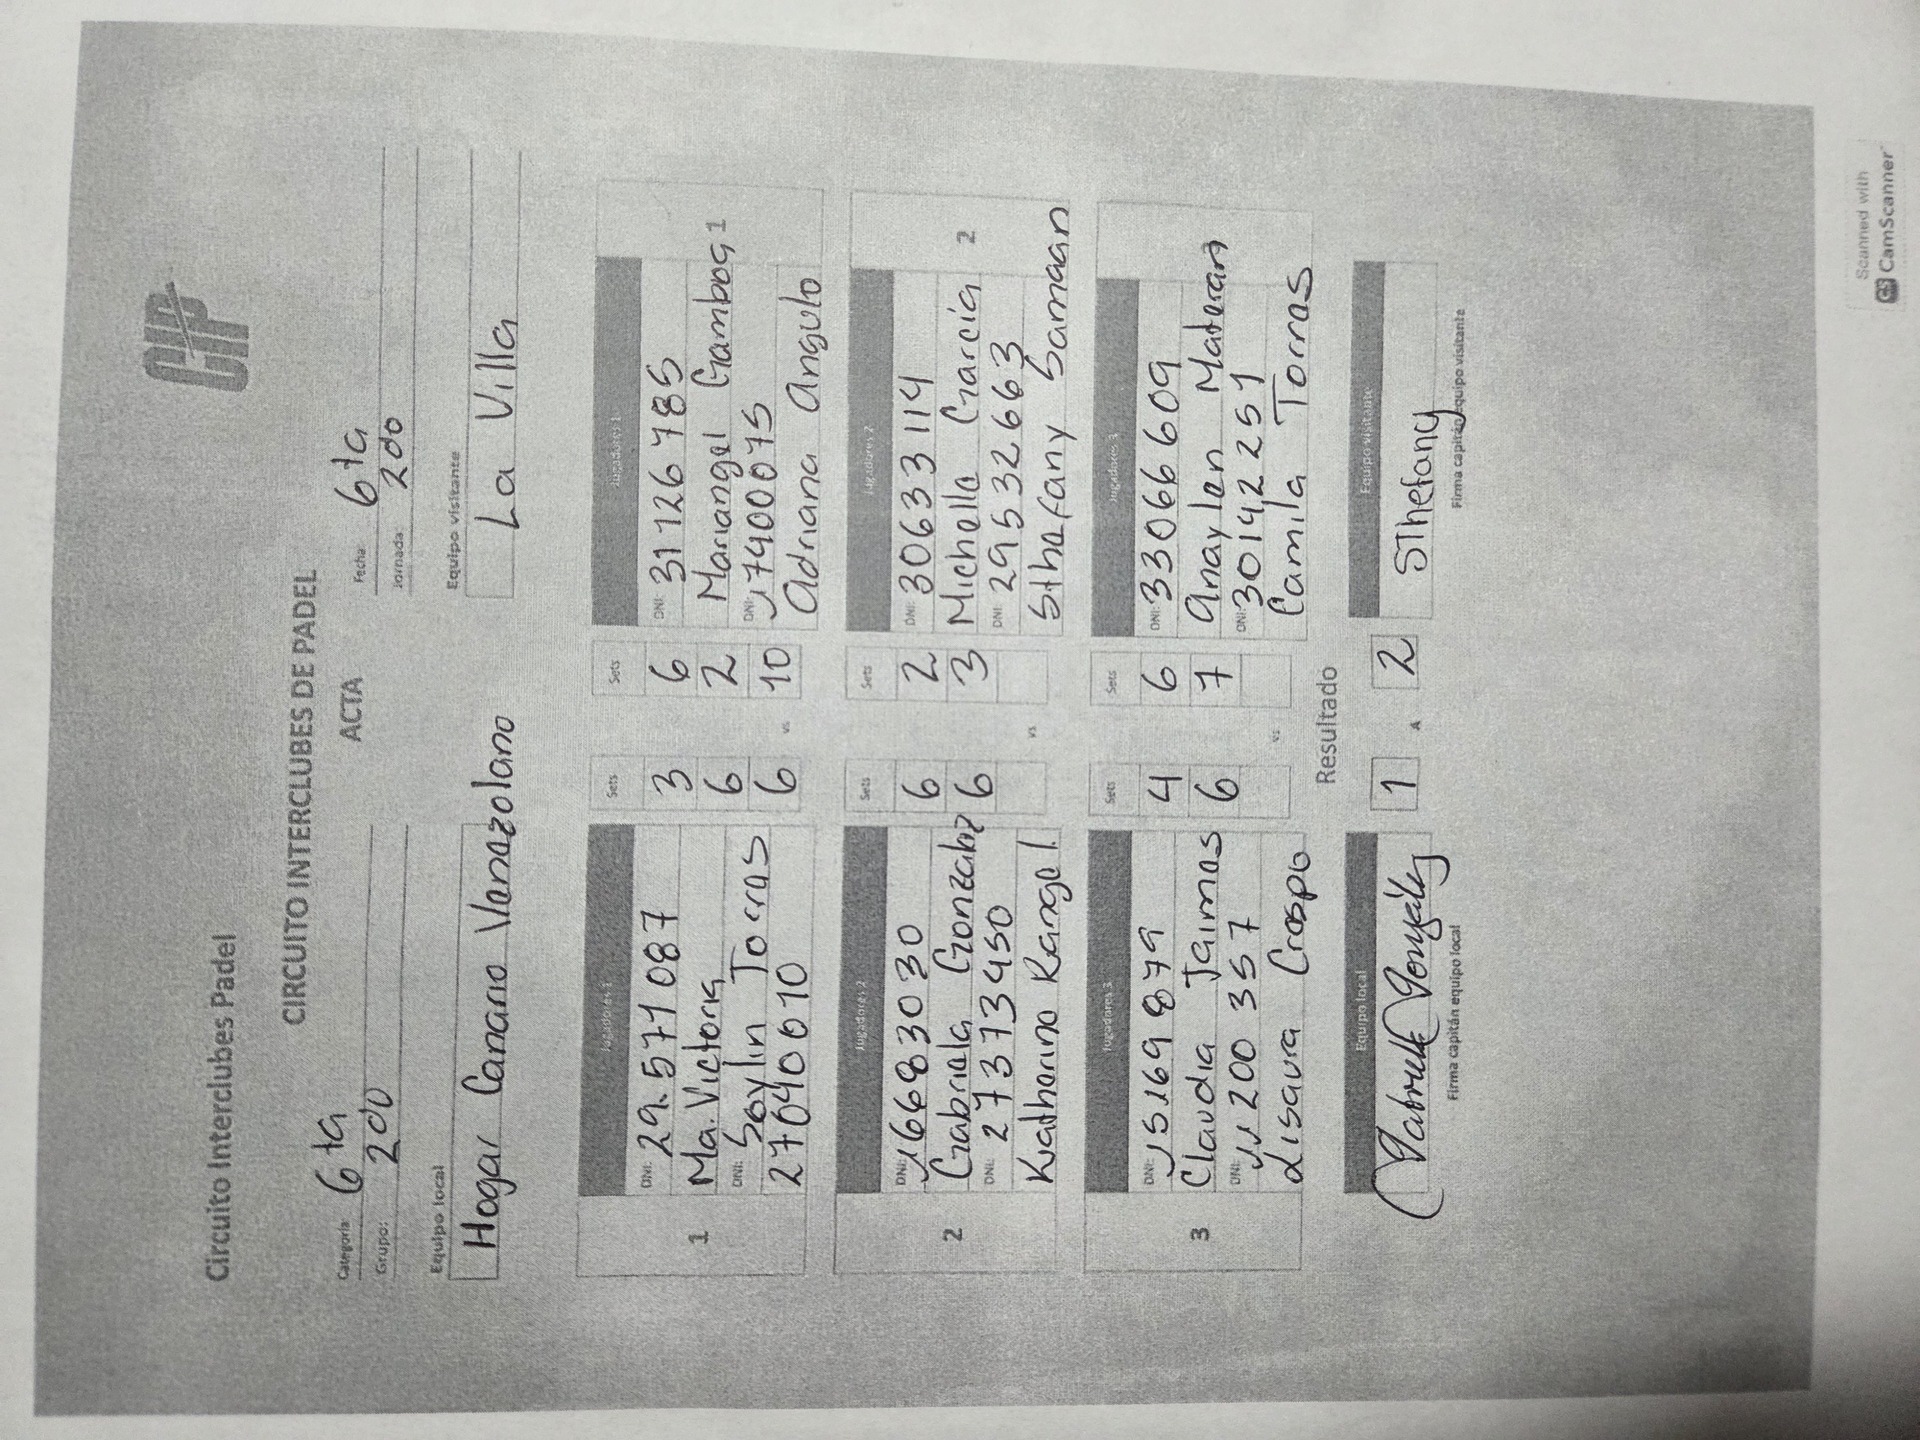 CIP
Circuito Interclubes Padel
CIRCUITO INTERCLUBES DE PADEL
ACTA
Categoría: 6ta
Fecha: 6ta
Grupo: 2do
Jornada: 2do
Equipo local
Equipo visitante
Hogar Canario Venezolano
La Villa
Jugadores 1
Sets
Sets
Jugadores 1
DNI: 29.571087
3
6
DNI: 31126785
Ma. Victoria
6
2
Mariangel Gamboa
1
1
DNI: Seylin Torres
6
vs
10
DNI: 17400075
27640010
Adriana Angulo
Jugadores 2
Sets
Sets
Jugadores 2
DNI: 16683030
6
2
DNI: 30633114
2
Gabriela Gonzalez
6
3
Michelle García
2
DNI: 27373450
DNI: 29532663
Katherine Rangel.
vs
Sthefany Samaan
Jugadores 3
Sets
Sets
Jugadores 3
DNI: 15169879
4
6
DNI: 33066609
3
Claudia Jaimes
6
7
Anaylen Materan
DNI: 11200357
vs
DNI: 30142251
Lisaura Crespo
Camila Torres
Resultado
Equipo local
1 A 2
Equipo visitante
Gabriela González
Sthefany
Firma capitán equipo local
Firma capitán equipo visitante
Scanned with
CS CamScanner